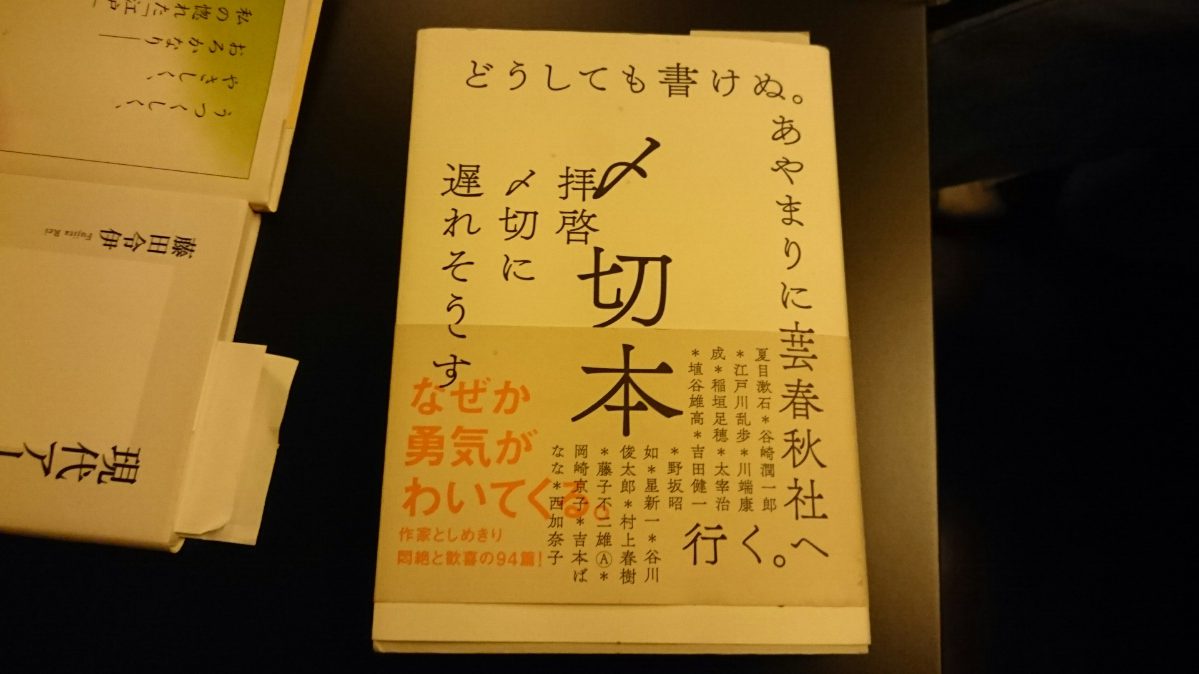 どうしても書けぬ。
あやまりに芸春秋社へ
行く。
〆切本
拝啓
〆切に
遅れそうです
夏目漱石*谷崎潤一郎
*江戸川乱歩*川端康
成*稲垣足穂*太宰治
*埴谷雄高*吉田健一
*野坂昭
如*星新一*谷川
俊太郎*村上春樹
*藤子不二雄Ⓐ*
岡崎京子*吉本ば
なな*西加奈子
なぜか
勇気が
わいてくる。
作家としめきり
悶絶と歓喜の94篇!
うつくしく、
やさしく、
おろかなり——
私の惚れた「江戸」
現代アー
藤田令伊